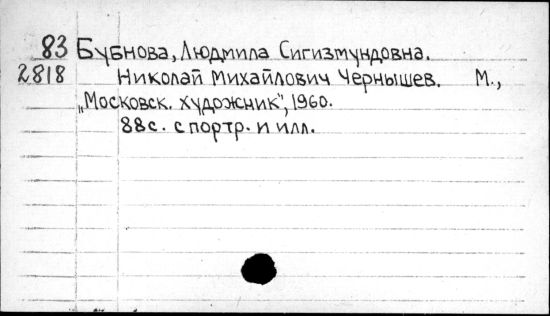 83 Бубнова, Людмила Сигизмундовна.
2818 Николай Михайлович Чернышев. М.,
„Московск. художник", 1960.
88с. с портр. и илл.